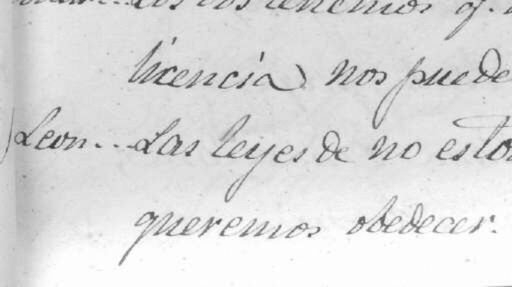 los tenemos q.
licencia nos puede
Leon.. Las leyes de no esto
queremos obedecer.